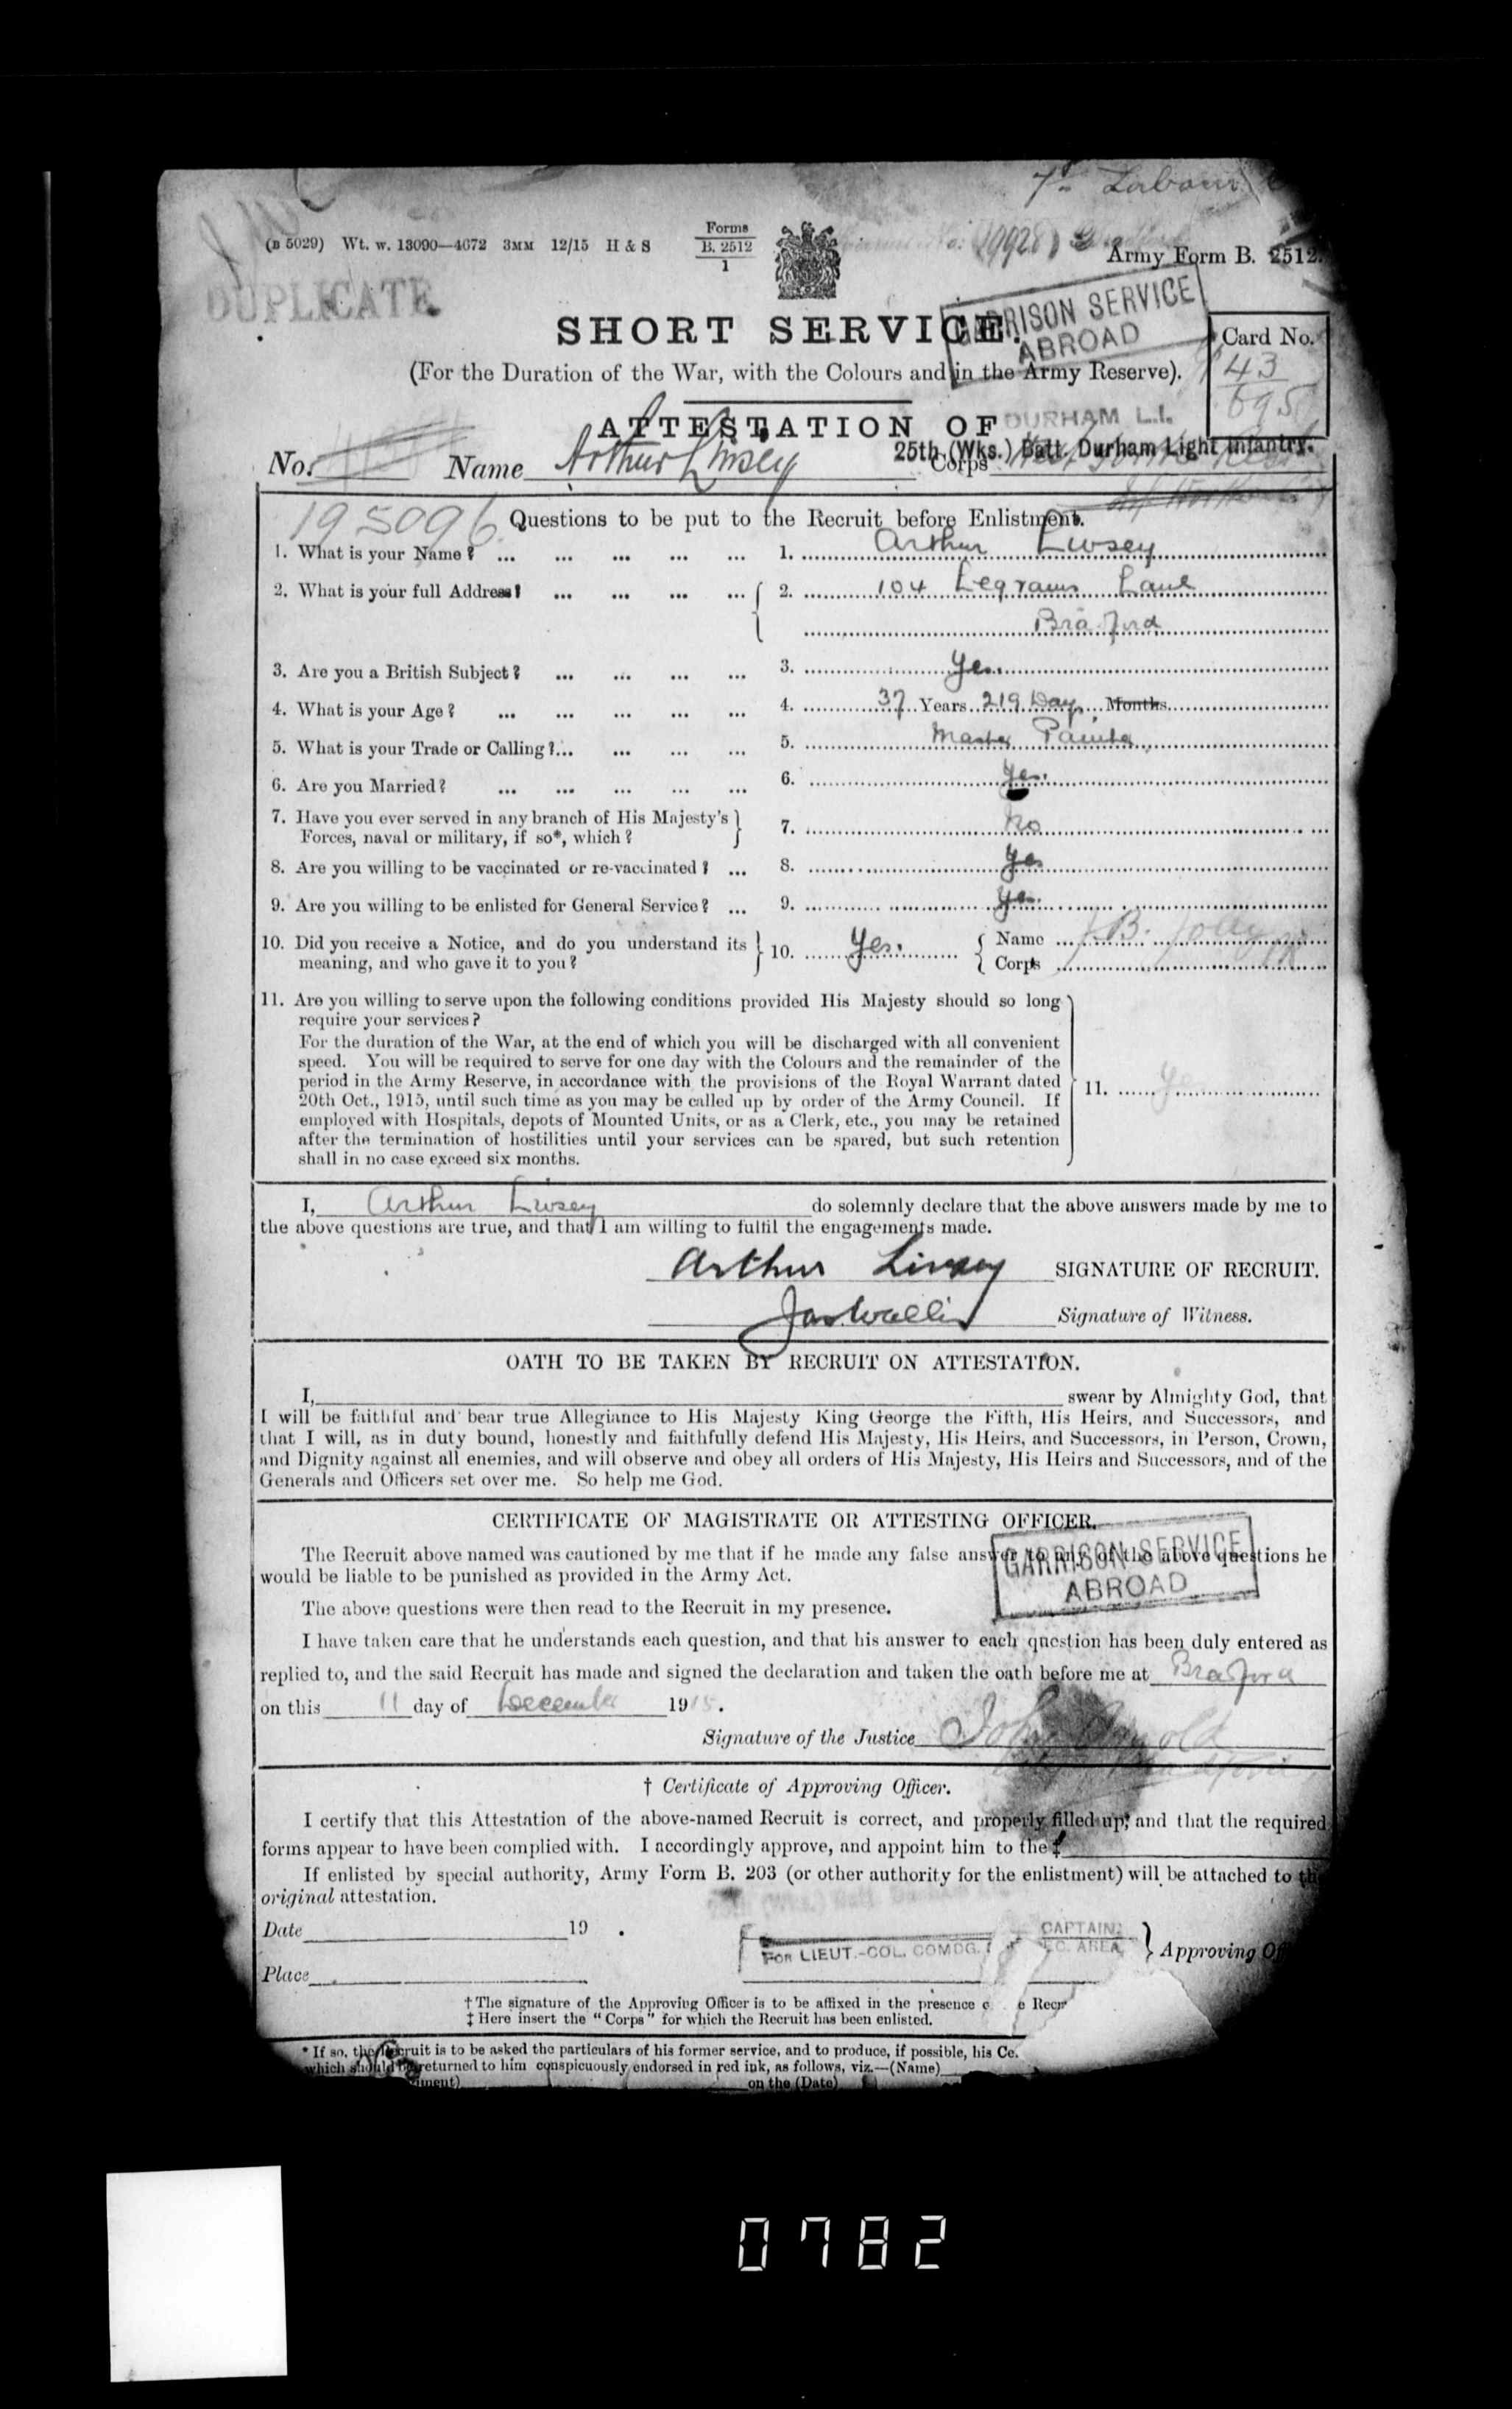 7th Labour
(B 5029) Wt. w. 13090—4672 3MM 12/15 H & S
Forms
B. 2512
1
Army Form B. 2512.
DUPLICATE
GARRISON SERVICE
ABROAD
SHORT SERVICE.
Card No.
43
695
(For the Duration of the War, with the Colours and in the Army Reserve).
ATTESTATION OF
DURHAM L.I.
25th (Wks.) Batt. Durham Light Infantry.
No. Name Arthur Livsey Corps
195096
Questions to be put to the Recruit before Enlistment.
1. What is your Name? ... ... ... ... ... 1. Arthur Livsey
2. What is your full Address? ... ... ... ... 2. 104 Legrams Lane
Bradford
3. Are you a British Subject? ... ... ... ... 3. Yes.
4. What is your Age? ... ... ... ... ... 4. 37 Years 219 Days Months
5. What is your Trade or Calling?... ... ... ... 5. Master Painter
6. Are you Married? ... ... ... ... ... 6. Yes.
7. Have you ever served in any branch of His Majesty's
Forces, naval or military, if so*, which? 7. No
8. Are you willing to be vaccinated or re-vaccinated? ... 8. Yes
9. Are you willing to be enlisted for General Service? ... 9. Yes.
10. Did you receive a Notice, and do you understand its
meaning, and who gave it to you? 10. Yes. Name B. Jolly
Corps
11. Are you willing to serve upon the following conditions provided His Majesty should so long
require your services?
For the duration of the War, at the end of which you will be discharged with all convenient
speed. You will be required to serve for one day with the Colours and the remainder of the
period in the Army Reserve, in accordance with the provisions of the Royal Warrant dated
20th Oct., 1915, until such time as you may be called up by order of the Army Council. If
employed with Hospitals, depots of Mounted Units, or as a Clerk, etc., you may be retained
after the termination of hostilities until your services can be spared, but such retention
shall in no case exceed six months.
11. Yes
I, Arthur Livsey do solemnly declare that the above answers made by me to
the above questions are true, and that I am willing to fulfil the engagements made.
Arthur Livsey SIGNATURE OF RECRUIT.
Jas. Wallis Signature of Witness.
OATH TO BE TAKEN BY RECRUIT ON ATTESTATION.
I, swear by Almighty God, that
I will be faithful and bear true Allegiance to His Majesty King George the Fifth, His Heirs, and Successors, and
that I will, as in duty bound, honestly and faithfully defend His Majesty, His Heirs, and Successors, in Person, Crown,
and Dignity against all enemies, and will observe and obey all orders of His Majesty, His Heirs and Successors, and of the
Generals and Officers set over me. So help me God.
CERTIFICATE OF MAGISTRATE OR ATTESTING OFFICER.
The Recruit above named was cautioned by me that if he made any false answer to any of the above questions he
would be liable to be punished as provided in the Army Act.
GARRISON SERVICE
ABROAD
The above questions were then read to the Recruit in my presence.
I have taken care that he understands each question, and that his answer to each question has been duly entered as
replied to, and the said Recruit has made and signed the declaration and taken the oath before me at Bradford
on this 11 day of December 1915.
Signature of the Justice John Arnold
† Certificate of Approving Officer.
I certify that this Attestation of the above-named Recruit is correct, and properly filled up, and that the required
forms appear to have been complied with. I accordingly approve, and appoint him to the ‡
If enlisted by special authority, Army Form B. 203 (or other authority for the enlistment) will be attached to the
original attestation.
Date 19 .
CAPTAIN.
FOR LIEUT.-COL. COMDG. AREA Approving Of
Place
† The signature of the Approving Officer is to be affixed in the presence o e Recr
‡ Here insert the "Corps" for which the Recruit has been enlisted.
* If so, the Recruit is to be asked the particulars of his former service, and to produce, if possible, his Ce.
which should be returned to him conspicuously endorsed in red ink, as follows, viz.—(Name)
iment) on the (Date)
0782